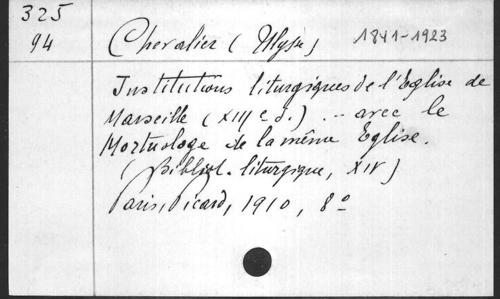 325
94 Chevalier (Ulysse) 1841-1923
Institutions liturgiques de l'Eglise de
Marseille (XIIIe s.) .- avec le
Mortuologe de la même Eglise.
(Bibliot. liturgique, XIV)
Paris, Picard, 1910, 8°